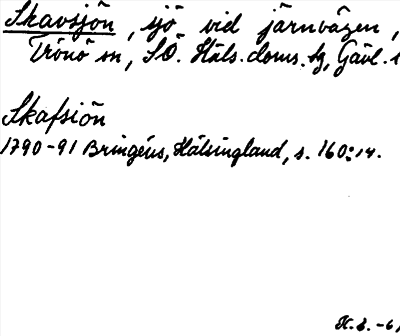 Skavsjön, sjö vid järnvägen,
Trönö sn, SÖ. Häls. doms.hg, Gävl.
Skafsiön
1790-91 Bringéus, Hälsingland, s. 160:14.
H.S. -6